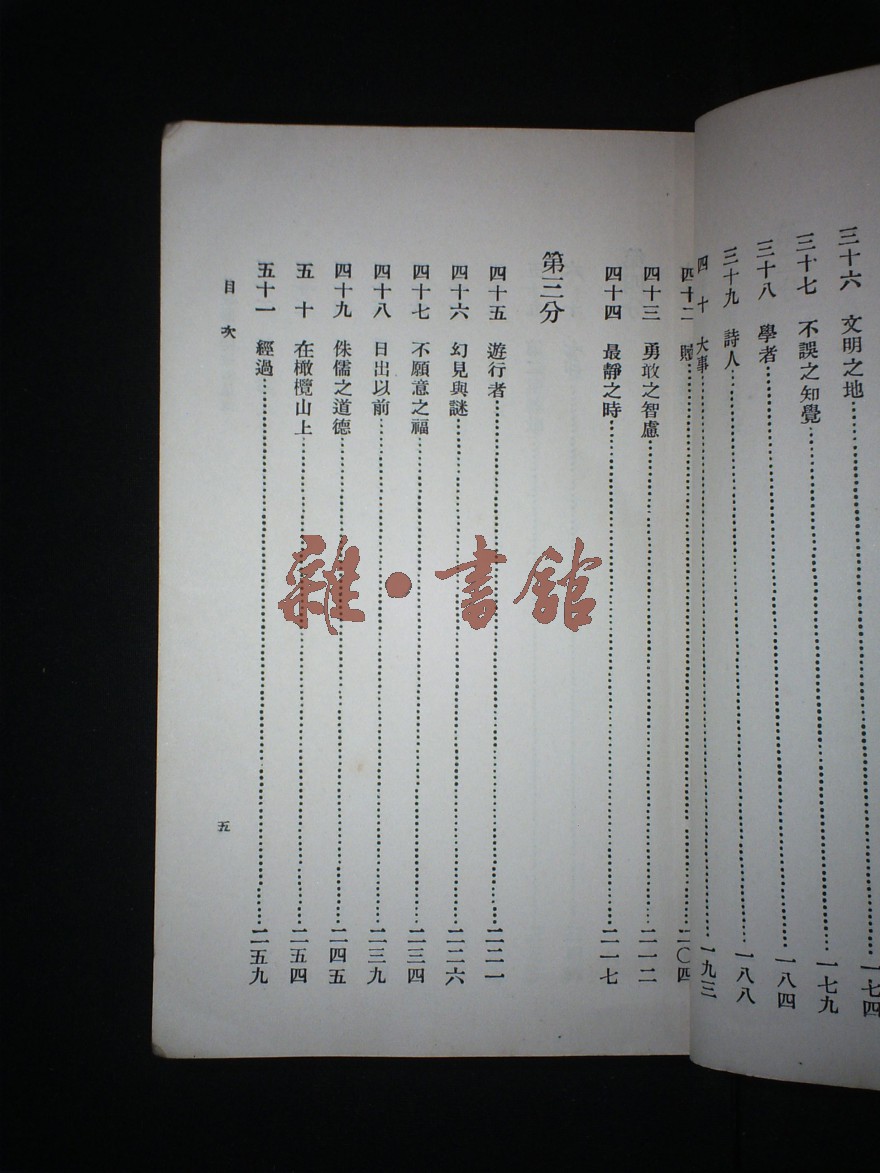 三十六 文明之地……一七四
三十七 不誤之知覺……一七九
三十八 學者……一八四
三十九 詩人……一八八
四十 大事……一九三
四十二 贖……二〇四
四十三 勇敢之智慮……二一二
四十四 最靜之時……二一七
第三分
四十五 遊行者……二二一
四十六 幻見與謎……二二六
四十七 不願意之福……二三四
四十八 日出以前……二三九
四十九 侏儒之道德……二四五
五十 在橄欖山上……二五四
五十一 經過……二五九
目次
五
雜·書館